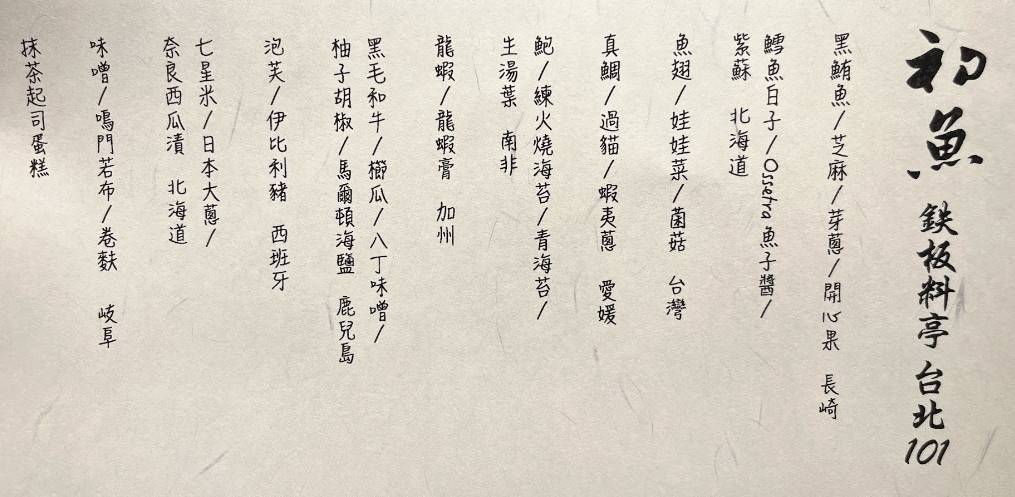 初魚 鉄板料亭 台北101
黑鮪魚/芝麻/芽蔥/開心果 長崎
鱈魚白子/Ossetra魚子醬/
紫蘇 北海道
魚翅/娃娃菜/菌菇 台灣
真鯛/過貓/蝦夷蔥 愛媛
鮑/練火燒海苔/青海苔/
生湯葉 南非
龍蝦/龍蝦膏 加州
黑毛和牛/櫛瓜/八丁味噌/
柚子胡椒/馬爾頓海鹽 鹿兒島
泡芙/伊比利豬 西班牙
七星米/日本大蔥/
奈良西瓜漬 北海道
味噌/鳴門若布/卷麩 岐阜
抹茶起司蛋糕